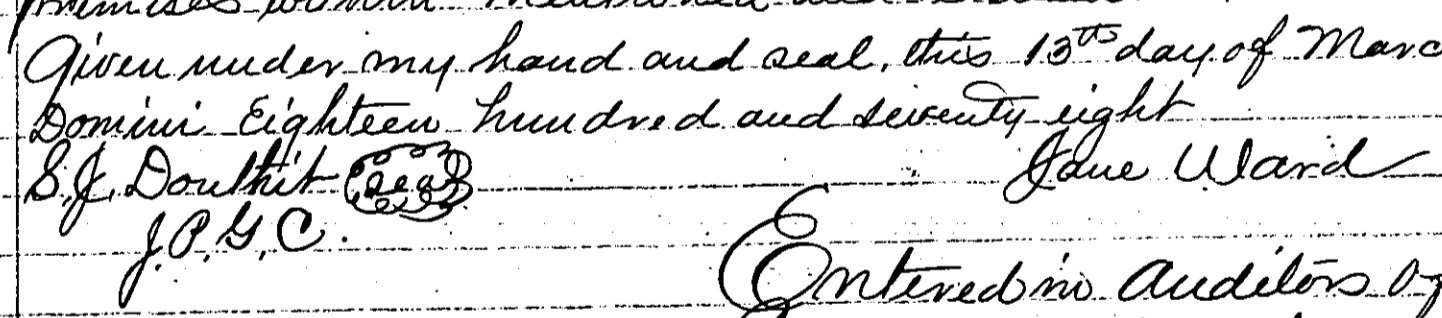 premises within mentioned and
Given under my hand and seal, this 13th day of Marc
Domini Eighteen hundred and seventy eight
S. J. Douthit (seal) Jane Ward
J. P. G. C.
Entered in Auditors Of